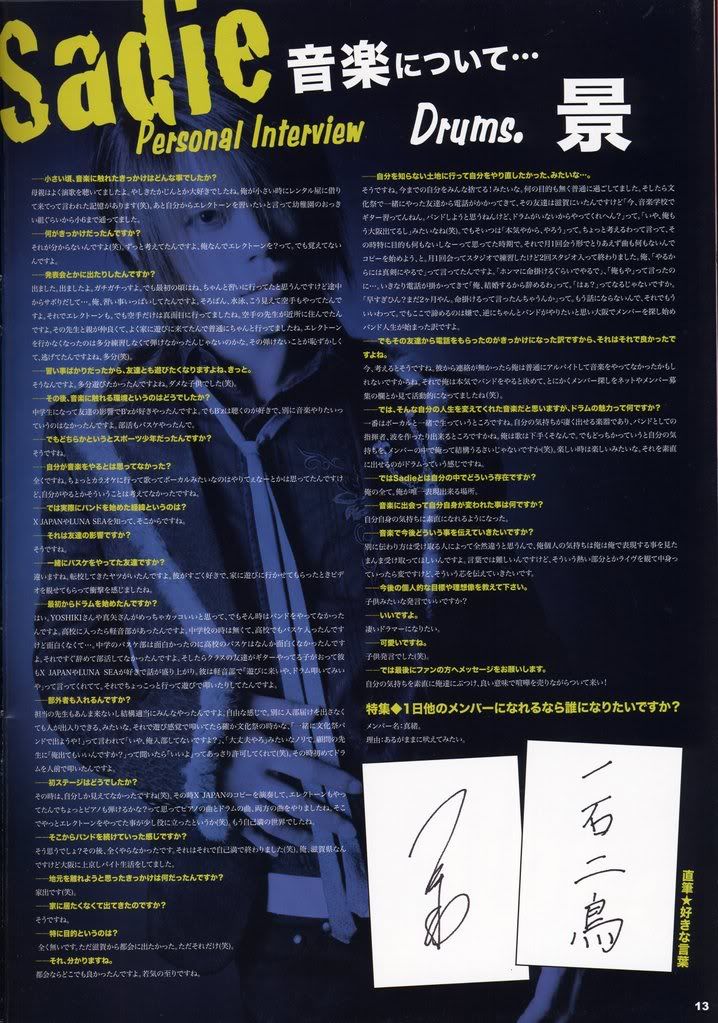 Sadie 音楽について…
Personal Interview Drums. 景
――小さい頃、音楽に触れたきっかけはどんな事でしたか?
母親はよく演歌を聴いてましたよ。やしきたかじんとか大好きでしたね。俺が小さい時にレンタル屋に借り
て来てって言われた記憶があります(笑)。あと自分からエレクトーンを習いたいと言って幼稚園のおっき
い組ぐらいから小6まで通ってました。
――何がきっかけだったんですか?
それが分からないんですよ(笑)。ずっと考えてたんですよ、俺なんでエレクトーンを?って、でも覚えてない
んですよ。
――発表会とかに出たりしたんですか?
出ました、出ましたよ。ガチガチっすよ。でも最初の頃はね、ちゃんと習いに行ってたと思うんですけど途中
からサボりだして…。俺、習い事いっぱいしてたんですよ。そろばん、水泳、こう見えて空手もやってたんで
すよ。それでエレクトーンも。でも空手だけは真面目に行ってましたね。空手の先生が近所に住んでたんで
すよ。その先生と親が仲良くて、よく家に遊びに来てたんで普通にちゃんと行ってましたね。エレクトーン
を行かなくなったのは多分練習しなくて弾けなかったんじゃないのかな、その弾けないことが恥ずかし
くて、逃げてたんですよね、多分(笑)。
――習い事ばかりだったから、友達とも遊びたくなりますよね、きっと。
そうなんですよ。多分遊びたかったんですよね。ダメな子供でした(笑)。
――その後、音楽に触れる環境というのはどうでしたか?
中学生になって友達の影響でB'zが好きやったんですよ。でもB'zは聴くのが好きで、別に音楽やりたいっ
ていうのはなかったんですよ。部活もバスケやったんで。
――でもどちらかというとスポーツ少年だったんですか?
そうですね。
――自分が音楽をやるとは思ってなかった?
全くですね。ちょっとカラオケに行って歌ってボーカルみたいなのはやりてぇなーとかは思ってたんですけ
ど、自分がやるとかそういうことは考えてなかったですね。
――では実際にバンドを始めた経緯というのは?
X JAPANやLUNA SEAを知って、そこからですね。
――それは友達の影響ですか?
そうですね。
――一緒にバスケをやってた友達ですか?
違いますね。転校してきたヤツがいたんですよ。彼がすごく好きで、家に遊びに行かせてもらったときビデ
オを観せてもらって衝撃を感じましたね。
――最初からドラムを始めたんですか?
はい。YOSHIKIさんや真矢さんがめっちゃカッコいいと思って、でもそん時はバンドをやってなかった
んですよ。高校に入ったら軽音部があったんですよ。中学校の時は無くて、高校でもバスケ入ったんですけ
ど面白くなくて…。中学のバスケ部は面白かったのに高校のバスケはなんか面白くなかったんですよ
ね。それですぐ辞めて部活してなかったんですよ。そしたらクラスの友達がギターやってる子がおって彼
もX JAPANやLUNA SEAが好きで話が盛り上がり、彼は軽音部で「遊びに来いや、ドラム叩いてみい
や」って言ってくれてて、それでちょっこっと行って遊びで叩いたりしてたんですよ。
――部外者も入れるんですか?
担当の先生もあんま来ないし結構適当にみんなやったんですよ。自由な感じで。別に入部届けを出さなく
ても人が出入りできる、みたいな。それで遊び感覚で叩いてたら確か文化祭の時かな、「一緒に文化祭バ
ンドで出ようや!」って言われて「いや、俺入部してないですよ?」、「大丈夫やろ」みたいなノリで、顧問の先
生に「俺出てもいいんですか?」って聞いたら「いいよ」ってあっさり許可してくれて(笑)、その時初めてドラ
ムを人前で叩いたんですよ。
――初ステージはどうでしたか?
その時は、自分しか見えてなかったですね(笑)。その時X JAPANのコピーを演奏して、エレクトーンもやっ
てたんでちょっとピアノも弾けるかな?って思ってピアノの曲とドラムの曲、両方の曲をやりましたね。そこ
でやっとエレクトーンをやってた事が少し役に立ったというか(笑)。もう自己満の世界でしたね。
――そこからバンドを続けていった感じですか?
そう思うでしょ?その後、全くやらなかったです。それはそれで自己満で終わりました(笑)。俺、滋賀県なん
ですけど大阪に上京しバイト生活をしてました。
――地元を離れようと思ったきっかけは何だったんですか?
家出です(笑)。
――家に居たくなくて出てきたのですか?
そうですね。
――特に目的というのは?
全く無いです。ただ滋賀から都会に出たかった。ただそれだけ(笑)。
――それ、分かりますね。
都会ならどこでも良かったんですよ、若気の至りですね。
――自分を知らない土地に行って自分をやり直したかった、みたいな…。
そうですね。今までの自分をみんな捨てる!みたいな。何の目的も無く普通に過ごしてました。そしたら文
化祭で一緒にやった友達から電話がかかってきて、その友達は滋賀にいたんですけど「今、音楽学校で
ギター習ってんねん。バンドしようと思うねんけど、ドラムがいないからやってくれへん?」って。「いや、俺も
う大阪出てるし」みたいなね(笑)。でもそいつは「本気やから、やろう」って、ちょっと考えるわって言って、そ
の時特に目的も何もないしなーって思ってた時期で、それで月1回会う形でとりあえず曲も何もないんで
コピーを始めよう、と。月1回会ってスタジオで練習したけど2回スタジオ入って終わりました。俺、「やるか
らには真剣にやるで」って言ってたんですよ。「ホンマに命掛けるぐらいでやるで」、「俺もや」って言ったの
に…。いきなり電話が掛かってきて「俺、結婚するから辞めるわ」って。「はぁ?」ってなるじゃないですか。
「早すぎひん?まだ2ヶ月やん。命掛けるって言ったんちゃうんか」って。もう話にならないんで、それでもう
いいわって。でもここで諦めるのは嫌で、逆にちゃんとバンドがやりたいと思い大阪でメンバーを探し始め
バンド人生が始まった訳ですよ。
――でもその友達から電話をもらったのがきっかけになった訳ですから、それはそれで良かったで
すよね。
今、考えるとそうですね。彼から連絡が無かったら俺は普通にアルバイトして音楽をやってなかったかも
しれないですからね。それで俺は本気でバンドをやると決めて、とにかくメンバー探しをネットやメンバー募
集の欄とか見て活動的になってましたね(笑)。
――では、そんな自分の人生を変えてくれた音楽だと思いますが、ドラムの魅力って何ですか?
一番はボーカルと一緒で生っていうところですね。自分の気持ちが凄く出せる楽器であり、バンドとしての
指揮者、波を作ったり出来るところですかね。俺は歌は下手くそなんで。でもどっちかっていうと自分の気
持ちを、メンバーの中で俺って結構うるさいじゃないですか(笑)。楽しい時は楽しいみたいな、それを素直
に出せるのがドラムっていう感じですね。
――ではSadieとは自分の中でどういう存在ですか?
俺の全て。俺が唯一表現出来る場所。
――音楽に出会って自分自身が変われた事は何ですか?
自分自身の気持ちに素直になれるようになった。
――音楽で今後どういう事を伝えていきたいですか?
別に伝わり方は受け取る人によって全然違うと思うんで、俺個人の気持ちは俺は俺で表現する事を見た
まんま受け取ってほしいんですよ。言葉では難しいんですけど、そういう熱い部分とかライヴを観て中身っ
ていったら変ですけど、そういう芯を伝えていきたいです。
――今後の個人的な目標や理想像を教えて下さい。
子供みたいな発言でいいですか?
――いいですよ。
凄いドラマーになりたい。
――可愛いですね。
子供発言でした(笑)。
――では最後にファンの方へメッセージをお願いします。
自分の気持ちを素直に俺達にぶつけ、良い意味で喧嘩を売りながらついて来い!
特集◆1日他のメンバーになれるなら誰になりたいですか?
メンバー名:真緒。
理由:あるがままに吠えてみたい。
一石二鳥
直筆★好きな言葉
13